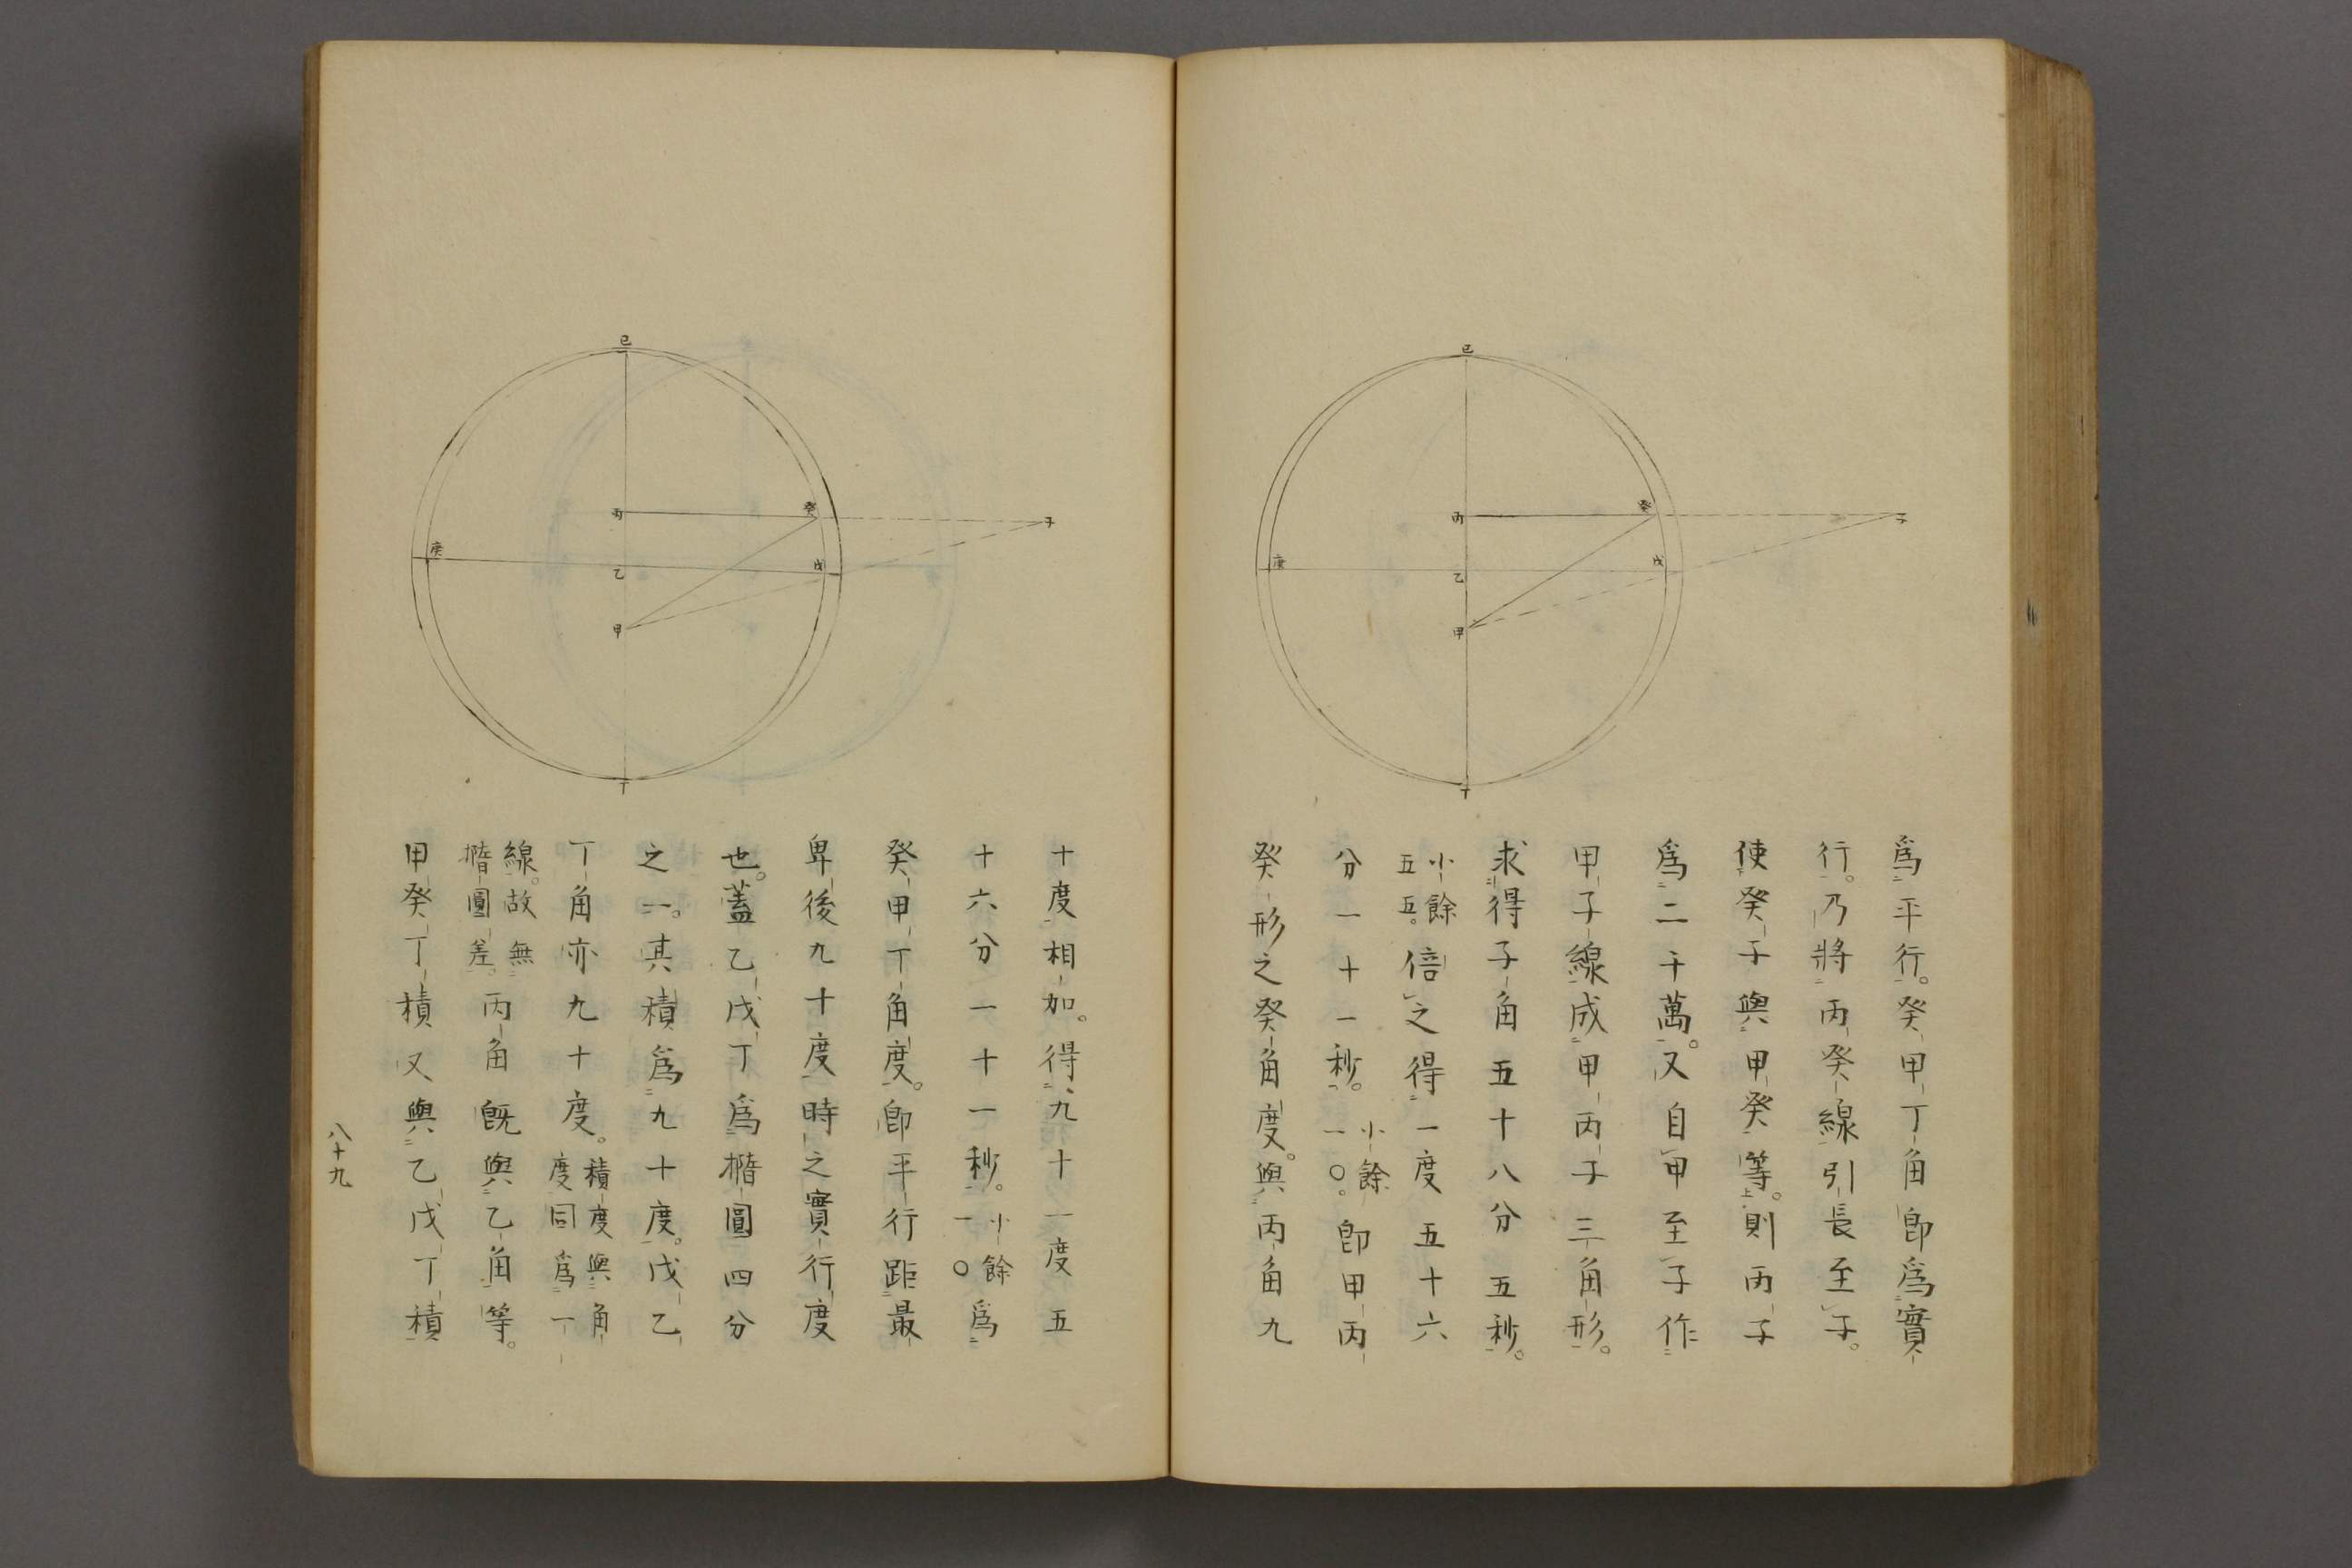 爲平行。癸甲丁角卽爲實
行。乃將丙癸線引長至子。
使癸子與甲癸等。則丙子
爲二千萬。又自甲至子作
甲子線成甲丙子三角形。
求得子角五十八分五秒。
小餘
五五。倍之得一度五十六
分一十一秒。小餘
一〇。卽甲丙
癸形之癸角度。與丙角九
己
丙
癸
子
庚
乙
戊
甲
丁
十度相加。得九十一度五
十六分一十一秒。小餘
一〇爲
癸甲丁角度。卽平行距最
卑後九十度時之實行度
也。蓋乙戊丁爲橢圓四分
之一。其積爲九十度。戊乙
丁角亦九十度。積度與角
度同爲一
線。故無
橢圓差。丙角旣與乙角等。
甲癸丁積又與乙戊丁積
己
丙
癸
子
庚
乙
戊
甲
丁
八十九